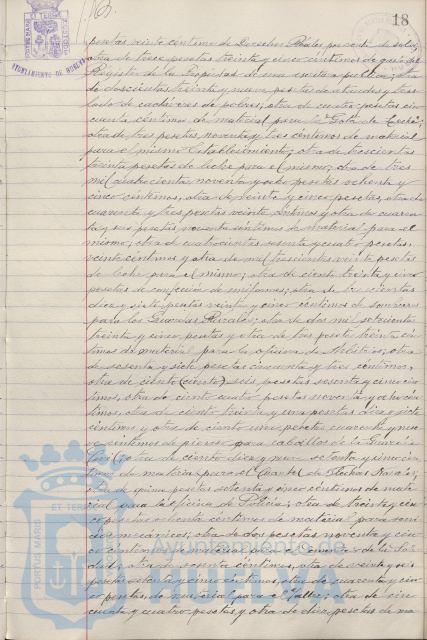 18
AYUNTAMIENTO DE HUELVA
pesetas veinte céntimos de Derechos Reales por
otra de trece pesetas treinta y cinco céntimos de
Registro de la Propiedad de una escritura pública; otra
de doscientas treinta y nueve pesetas de ataudes y tras
lado de cadáveres de pobres; otra de cuatro pesetas cin
cuenta céntimos de material para la Gota de Leche;
otra de tres pesetas noventa y tres céntimos de material
para el mismo Establecimiento; otra de trescientas
treinta pesetas de leche para el mismo; otra de tres
mil cuatrocientas noventa y ocho pesetas ochenta y
cinco céntimos, otra de veinte y cinco pesetas, otra de
cuarenta y tres pesetas veinte céntimos y otra de cuaren
ta y seis pesetas noventa céntimos de material para el
mismo; otra de cuatrocientas sesenta y cuatro pesetas,
veinte céntimos y otra de mil trescientas veinte pesetas
de leche para el mismo; otra de ciento treinta y cinco
pesetas de confección de uniformes; otra de
diez y siete pesetas veinte y cinco céntimos de sombreros
para los Guardas Rurales; otra de dos mil
treinta y cinco pesetas y otra de tres pesetas treinta cén
timos de material para la oficina de Arbitrios; otra
de sesenta y siete pesetas cincuenta y tres céntimos,
otra de ciento (ciento) seis pesetas sesenta y cinco cén
timos, otra de ciento cuatro pesetas noventa y
timos, otra de ciento treinta y una pesetas diez y siete
céntimos y otra de ciento una pesetas cuarenta y nue
ve céntimos de pienso para caballos de la Guardia
Civil; otra de ciento diez y nueve setenta y cinco cén
timos de material para el Cuartel de Flechas Navales;
otra de quince pesetas setenta y cinco céntimos de mate
rial para la oficina de Policía; otra de treinta y cin
co pesetas ochenta céntimos de material para
mecánicos; otra de dos pesetas noventa y cin
co céntimos de material para el
otra de sesenta céntimos, otra de veinte y seis
pesetas setenta y cinco céntimos, otra de cuarenta y cin
co pesetas de material para el Taller; otra de cin
cuenta y cuatro pesetas y otra de diez pesetas de ma
PORTUS MARIS ET TERRAE
Ayuntamiento de